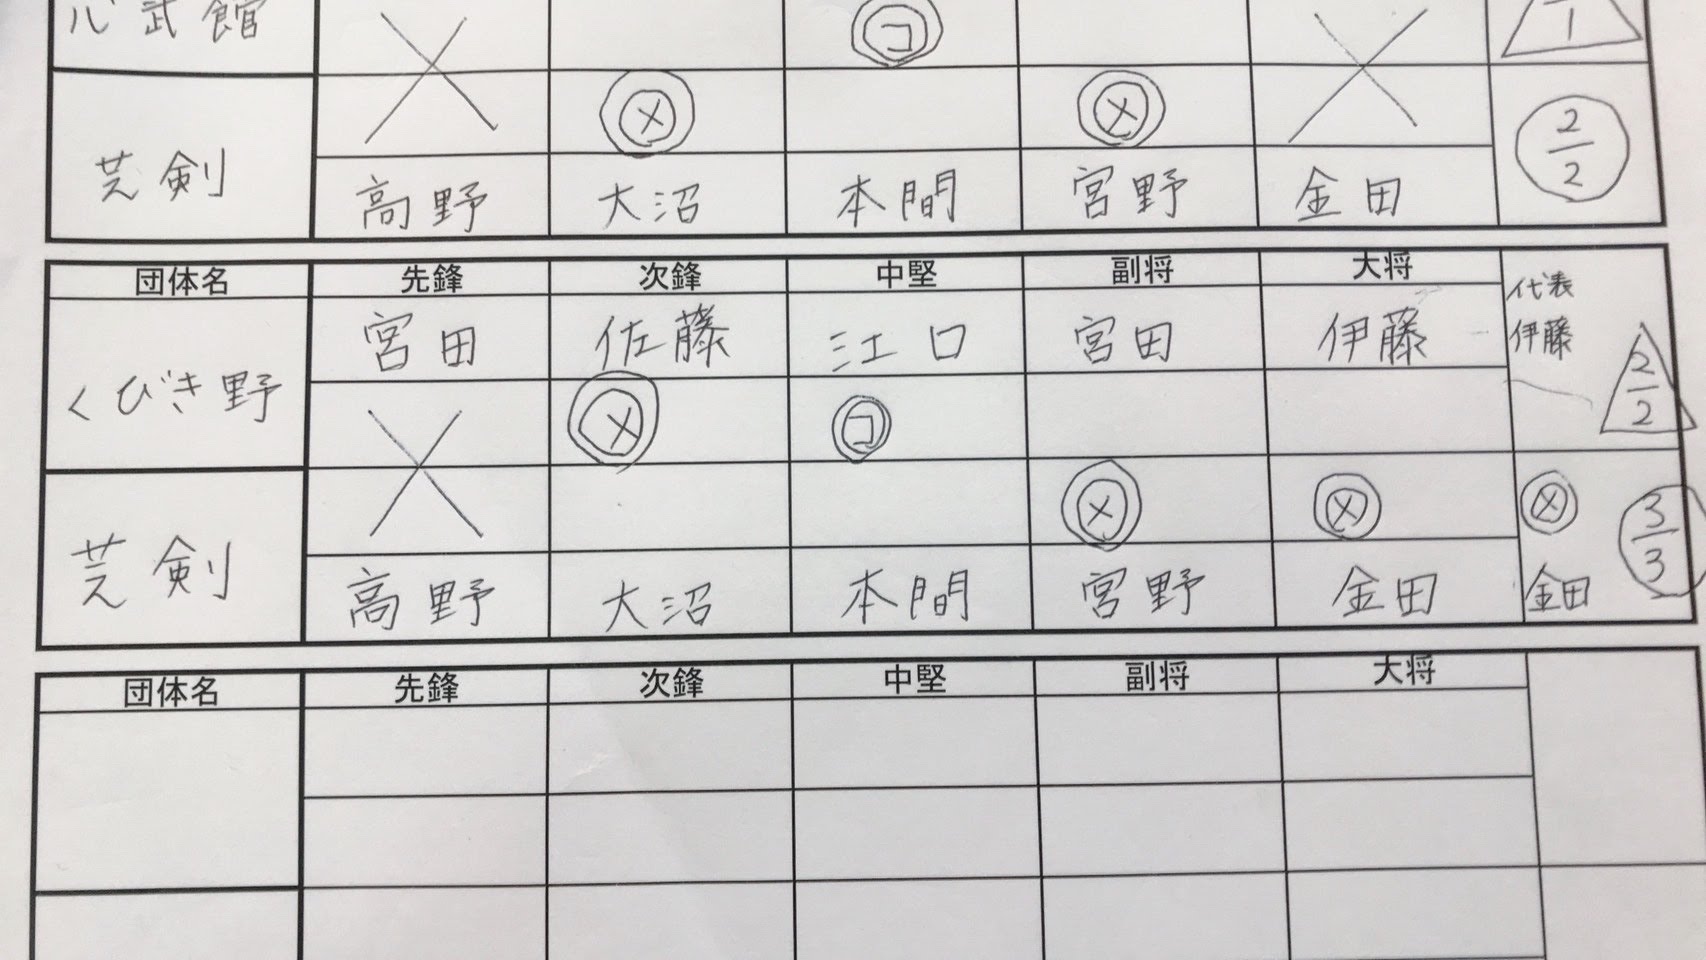 武館 コ 1
メ メ 2/2
芸剣 高野 大沼 本間 宮野 金田
団体名 先鋒 次鋒 中堅 副将 大将
くびき野 宮田 佐藤 江口 宮田 伊藤 代表 伊藤
メ コ 2/2
メ メ メ 3/3
芸剣 高野 大沼 本間 宮野 金田 金田
団体名 先鋒 次鋒 中堅 副将 大将